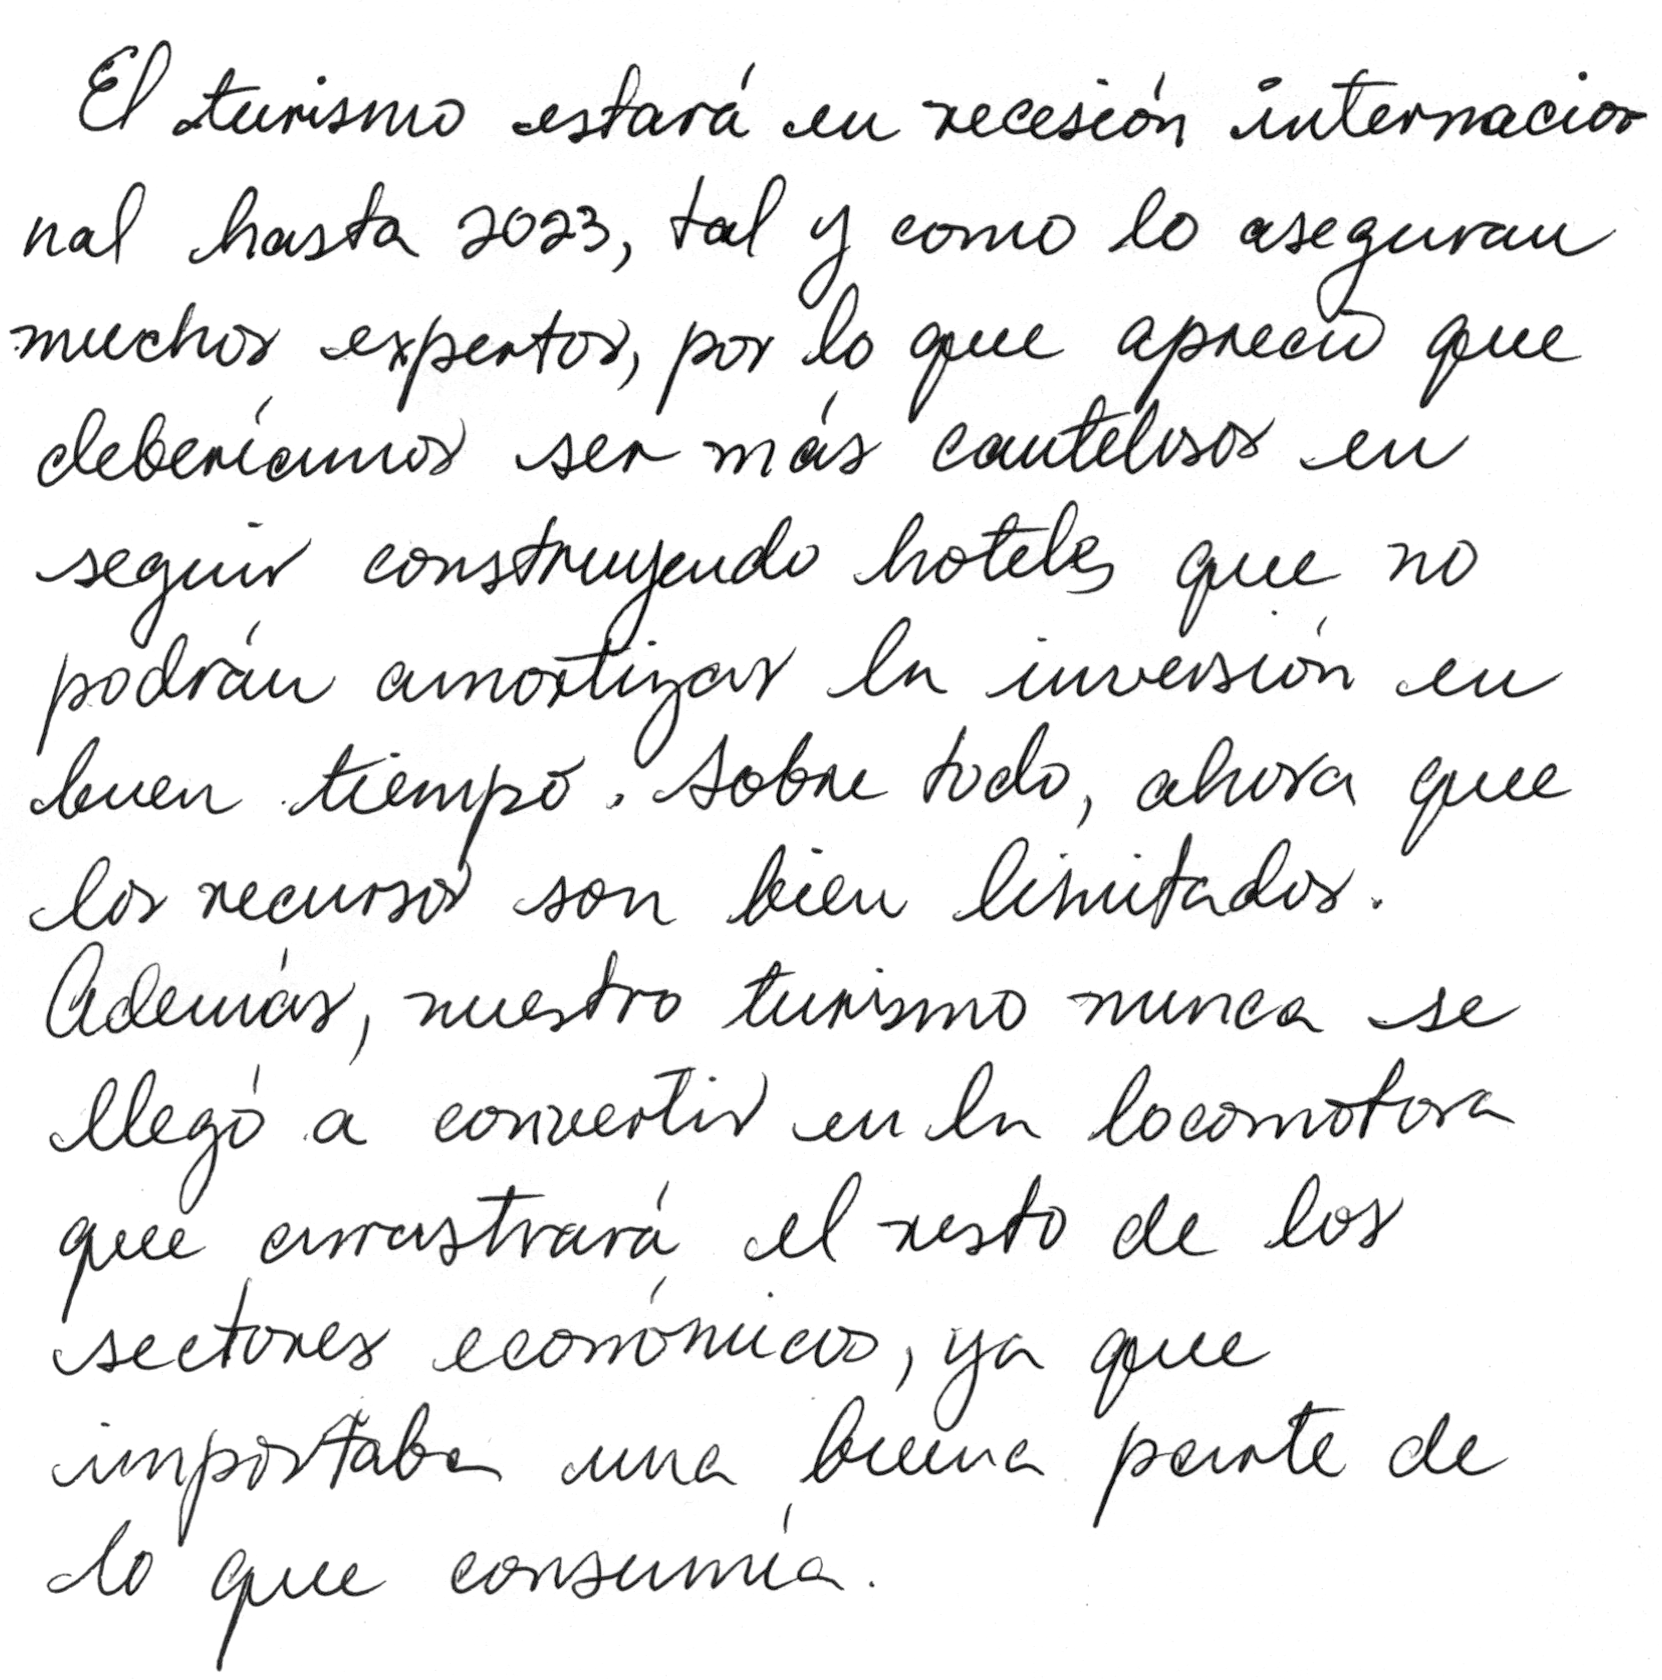 El turismo estará en recesión internacio-
nal hasta 2023, tal y como lo aseguran
muchos expertos, por lo que aprecio que
deberíamos ser más cautelosos en
seguir construyendo hoteles que no
podrán amortizar la inversión en
buen tiempo. Sobre todo, ahora que
los recursos son bien limitados.
Además, nuestro turismo nunca se
llegó a convertir en la locomotora
que arrastrará el resto de los
sectores económicos, ya que
importaba una buena parte de
lo que consumía.